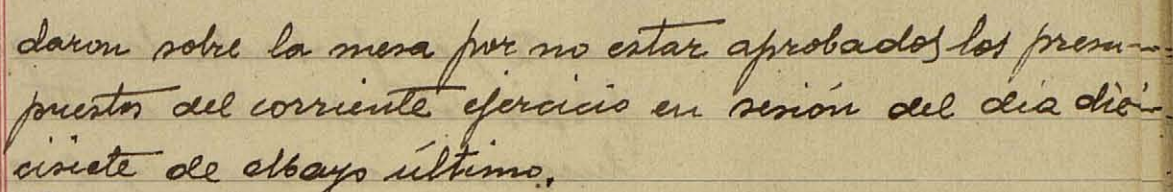 daron sobre la mesa por no estar aprobados los presu-
puestos del corriente ejercicio en sesión del día dié-
cisiete de Mayo último.